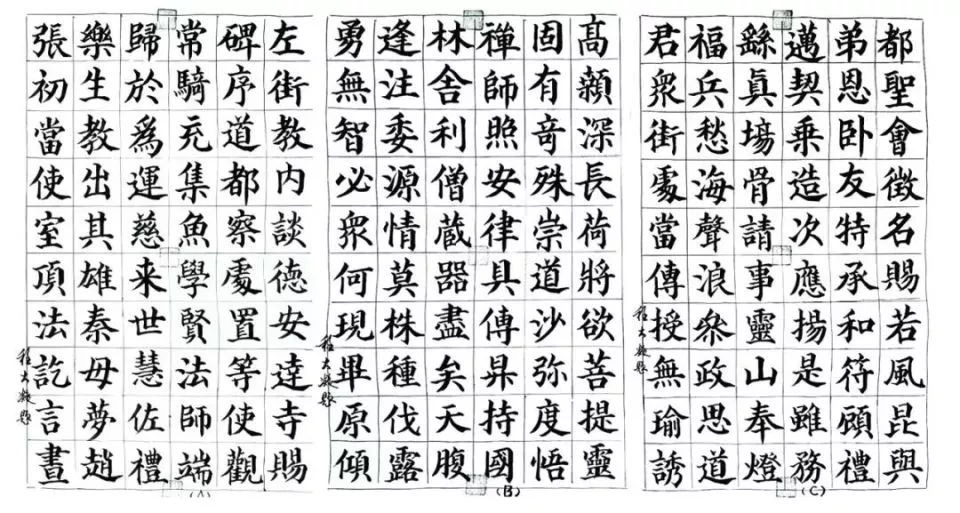 左街教内談德安達寺賜
碑序道都察處置等使觀
常騎充集魚學賢法師端
歸於爲運慈来世慧佐禮
樂生教出其雄秦母夢趙
張初當使室頂法訖言晝
(A)
高顙深長荷將欲菩提靈
固有竒殊崇道沙弥度悟
禪師照安律具傳昇持國
林舍利僧蔵器盡矣天腹
逢注委源情莫株種伐露
勇無智必衆何現畢原傾
(B)
都聖會徵名賜若風昆與
弟恩卧友特承和符顧禮
邁契乗造次應揚是雖務
繇真場骨請事靈山奉燈
福兵愁海聲浪叅政思道
君衆街處當傳授無瑜誘
(C)